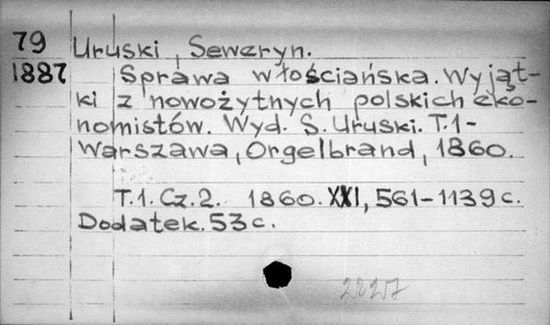 79 Uruski, Seweryn.
1887 Sprawa włościańska. Wyjąt-
ki z nowożytnych polskich eko-
nomistów. Wyd. S. Uruski. T.1-
Warszawa, Orgelbrand, 1860.
T.1. Cz.2. 1860. XXI, 561-1139 c.
Dodatek. 53 c.